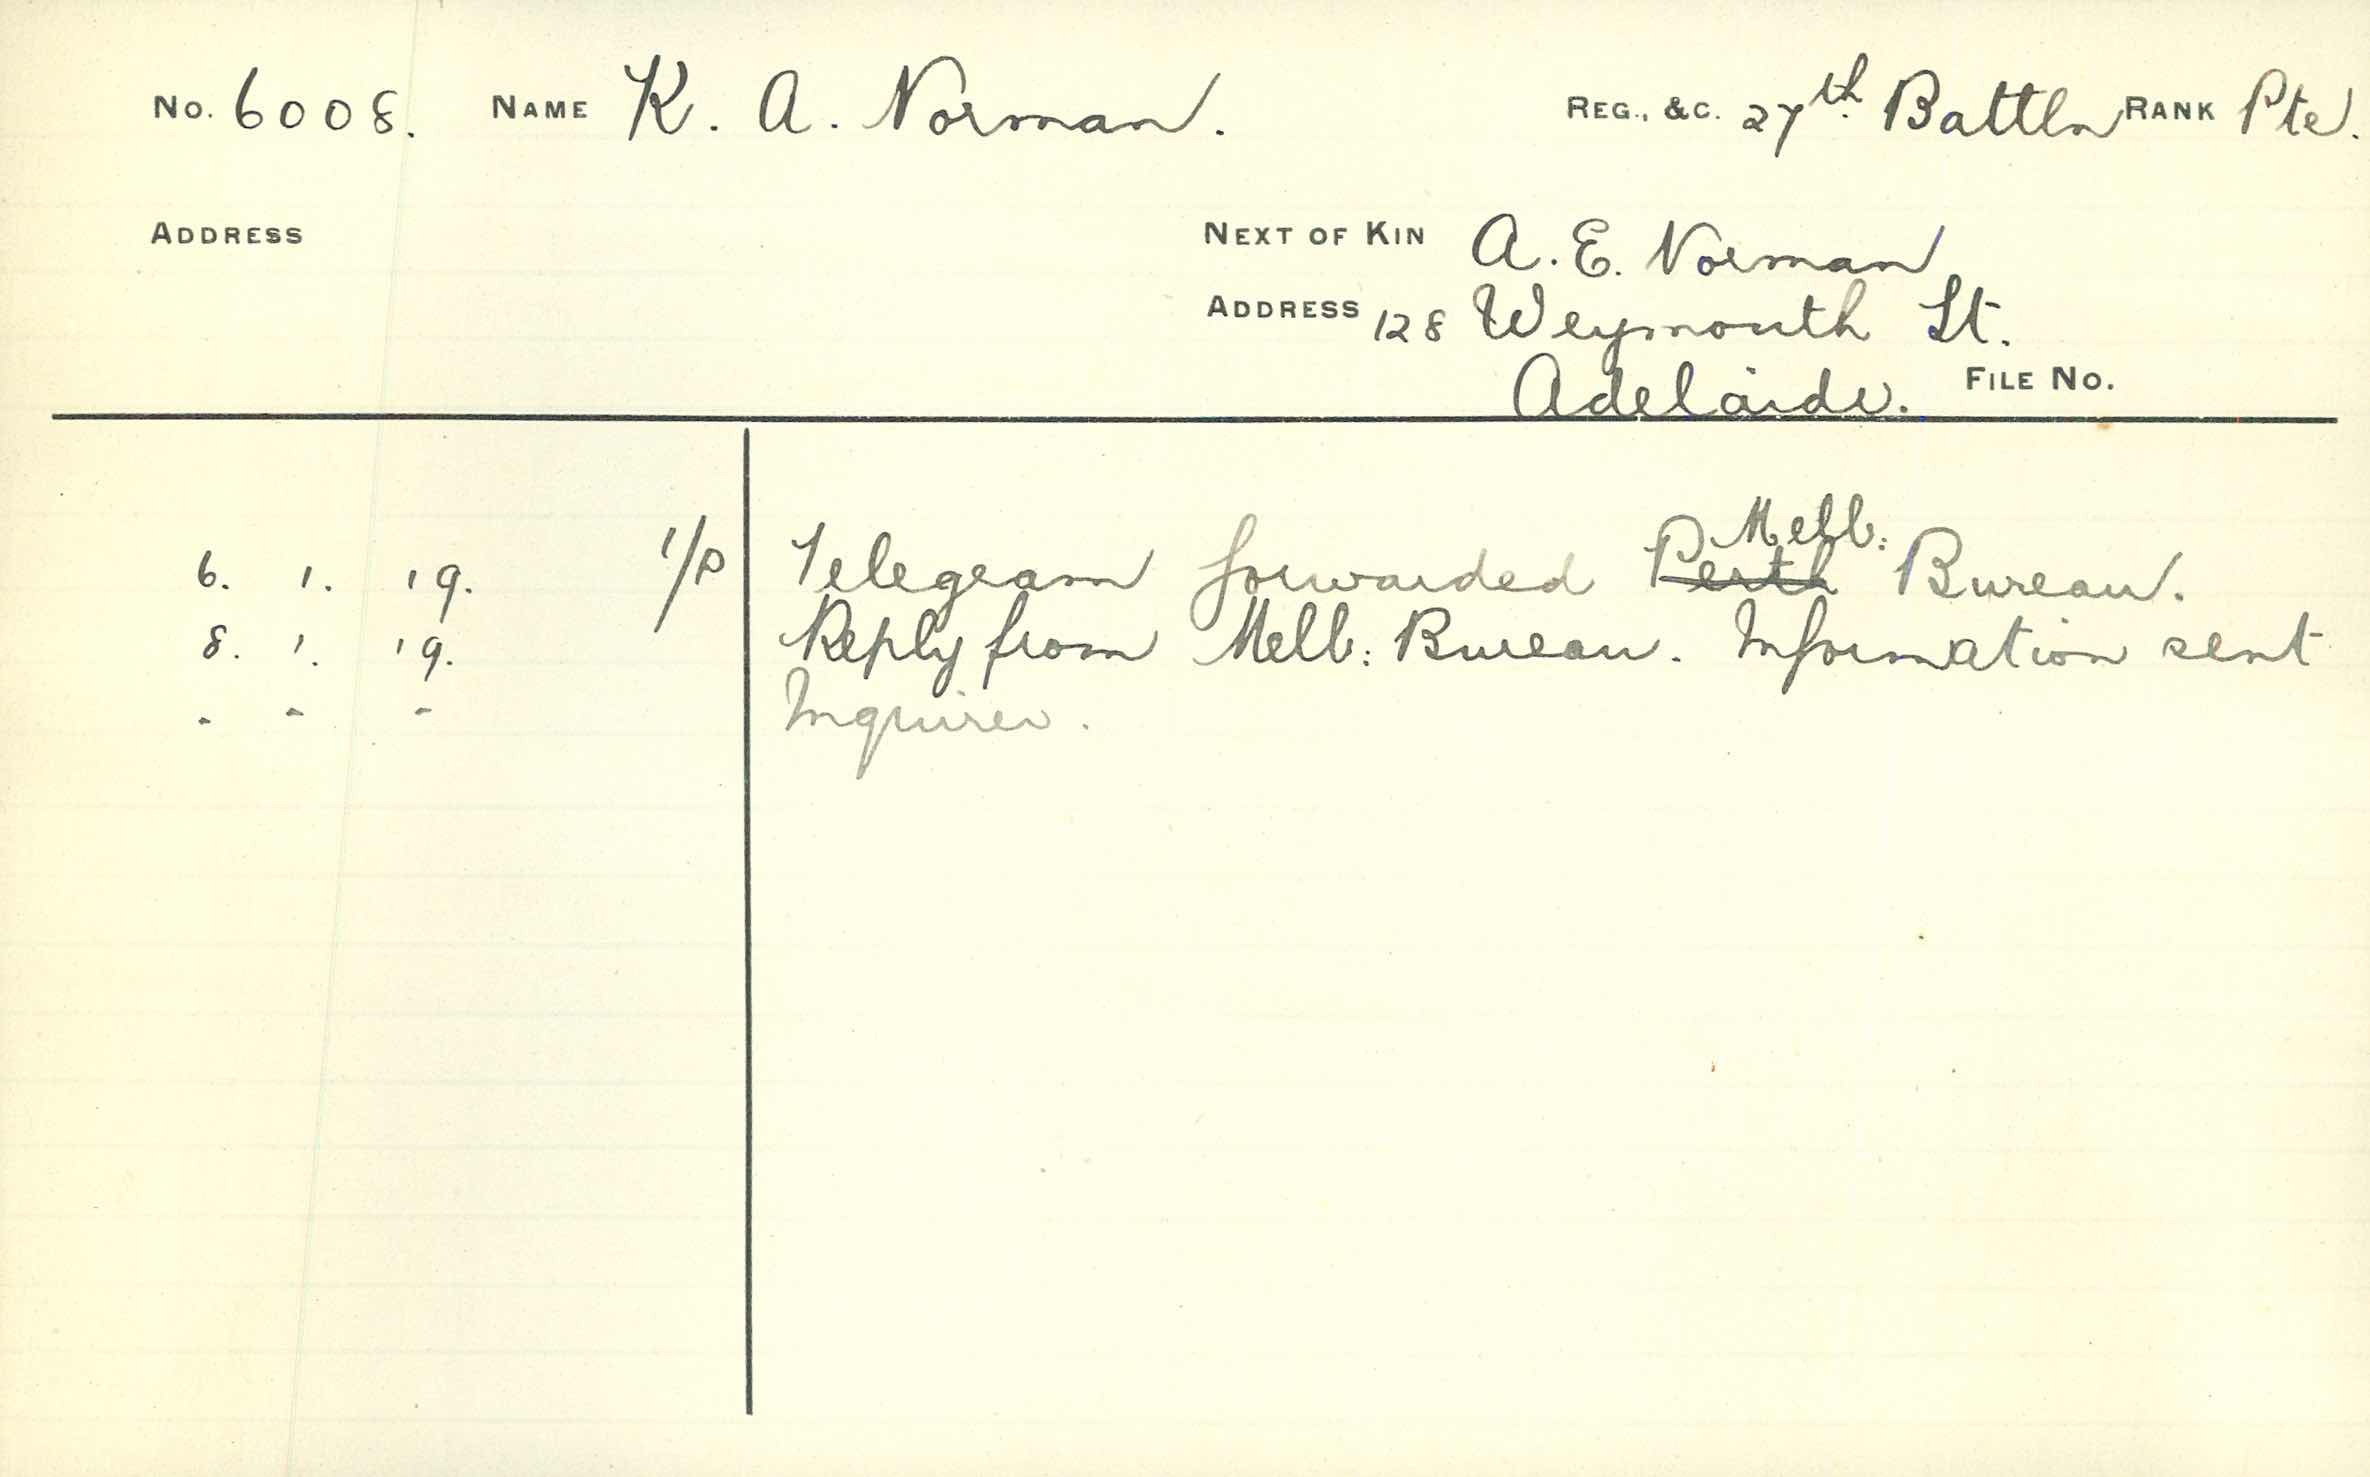 No. 6008. NAME K. A. Norman. REG., &C. 27th. Battln RANK Pte.
ADDRESS NEXT OF KIN A. E. Norman
ADDRESS 128 Weymouth St.
Adelaide. FILE No.
Melb:
6. 1. '19. 1/P Telegram forwarded Perth Bureau.
8. 1. '19. Reply from Melb: Bureau. Information sent
. - - Inquirer.